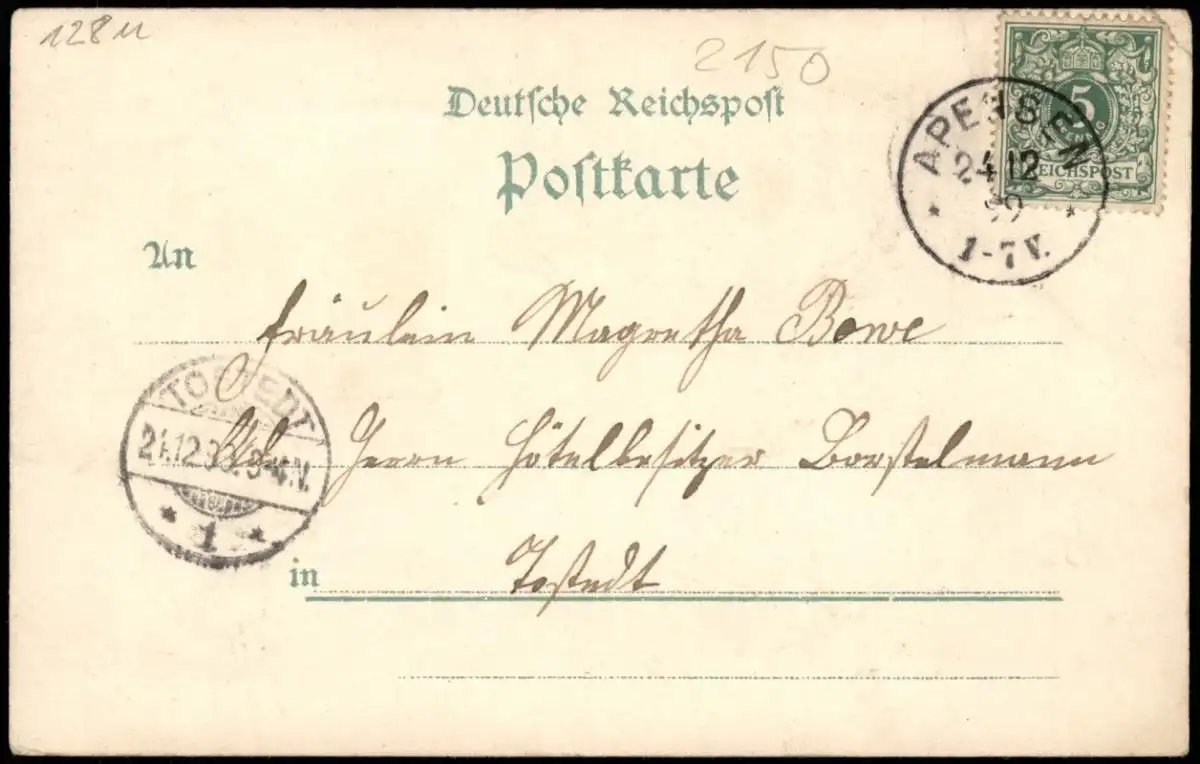 128 u
2150
Deutsche Reichspost
Postkarte
5
REICHSPOST
APENSEN
24 12
99
1-7 V.
An
Fräulein Magretha Bowe
TOSTEDT
24.12.
1
Herrn Hôtelbesitzer Borstelmann
in Tostedt